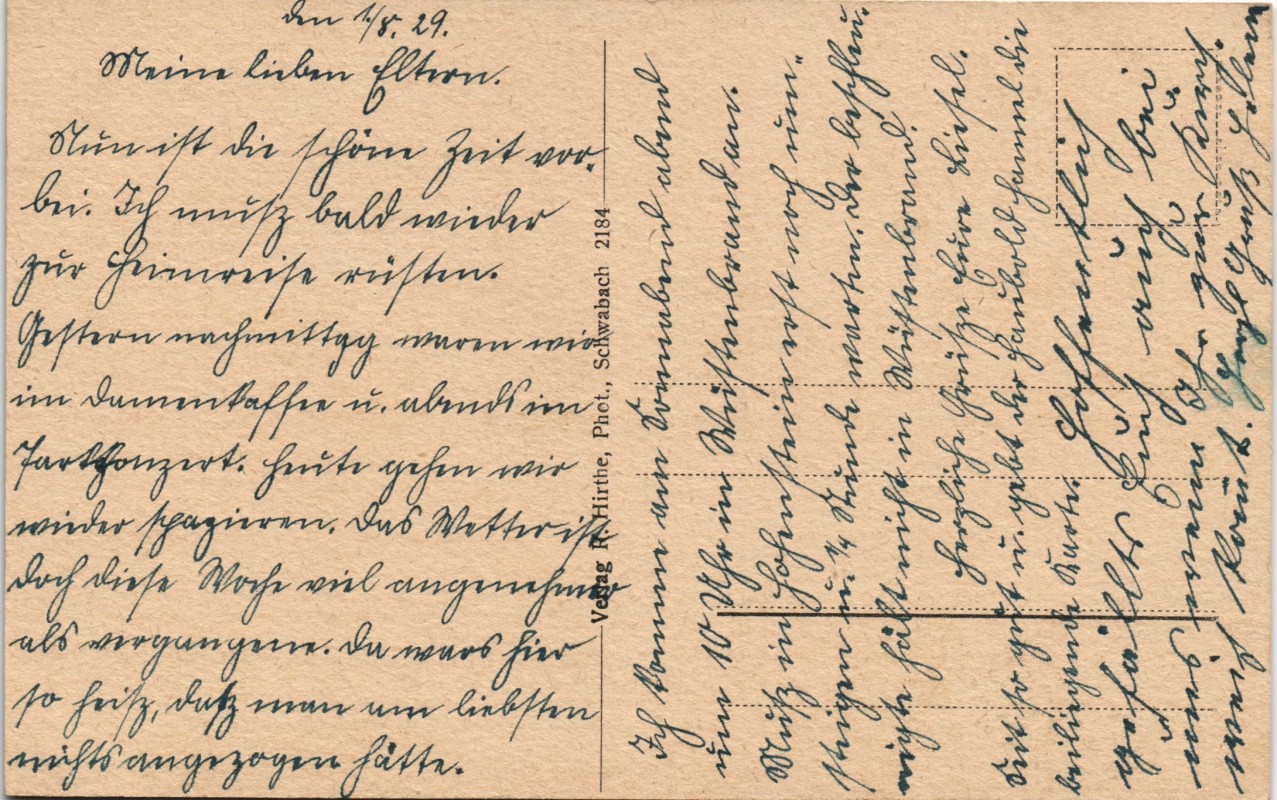 den 1./8. 29.
Meine lieben Eltern.
Nun ist die schöne Zeit vor-
bei. Ich muß bald wieder
zur Heimreise rüsten.
Gestern nachmittag waren wir
im Damenkaffee u. abends im
Parkkonzert. Heute gehen wir
wieder spazieren. Das Wetter ist
doch diese Woche viel angenehmer
als vergangene. Da wars hier
so heiß, daß man am liebsten
nichts angezogen hätte.
Verlag R. Hirthe, Phot., Schwabach 2184
Ich komme am Sonnabend abend
um 10 Uhr in Wüstenbrand an.
Muß in Hohenstein erst noch um-
steigen u. ¼ Stunde warten. Der beschleu-
nigte hält nicht in Wüstenbrand.
Herzliche Grüße Eure Liesel.
Seit so gut u. gebt der Haubold Hannel die
beiliegende Karte.
Hoffentlich
gefällts Euch auch bei
uns wenn Ihr zur Kirmes
mich kommt. Herzl. Gruß